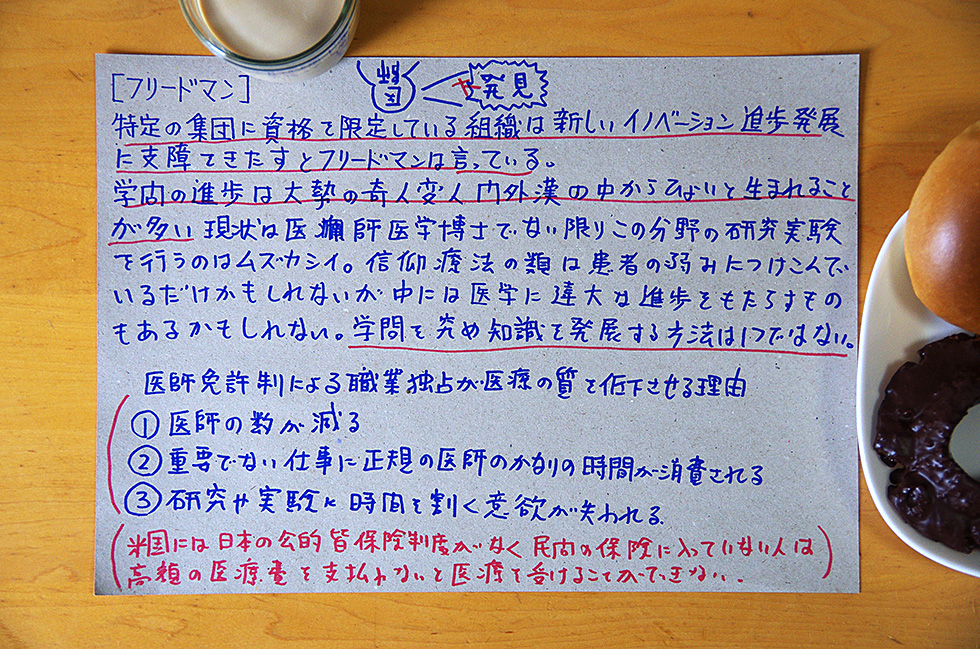 [フリードマン] 発見
特定の集団に資格を限定している組織は新しいイノベーション進歩発展
に支障をきたすとフリードマンは言っている。
学問の進歩は大勢の奇人変人門外漢の中からひょいと生まれること
が多い 現状は医師医学博士でない限りこの分野の研究実験
を行うのはムズカシイ。信仰療法の類は患者の弱みにつけこんで
いるだけかもしれないが中には医学に達大な進歩をもたらすもの
もあるかもしれない。学問を究め知識を発展する方法は1つではない。
医師免許制による職業独占が医療の質を低下させる理由
① 医師の数が減る
② 重要でない仕事に正規の医師のかなりの時間が消費される
③ 研究や実験に時間を割く意欲が失われる
(米国には日本の公的皆保険制度がなく民間の保険に入っていない人は
高額の医療費を支払わないと医療を受けることができない.)